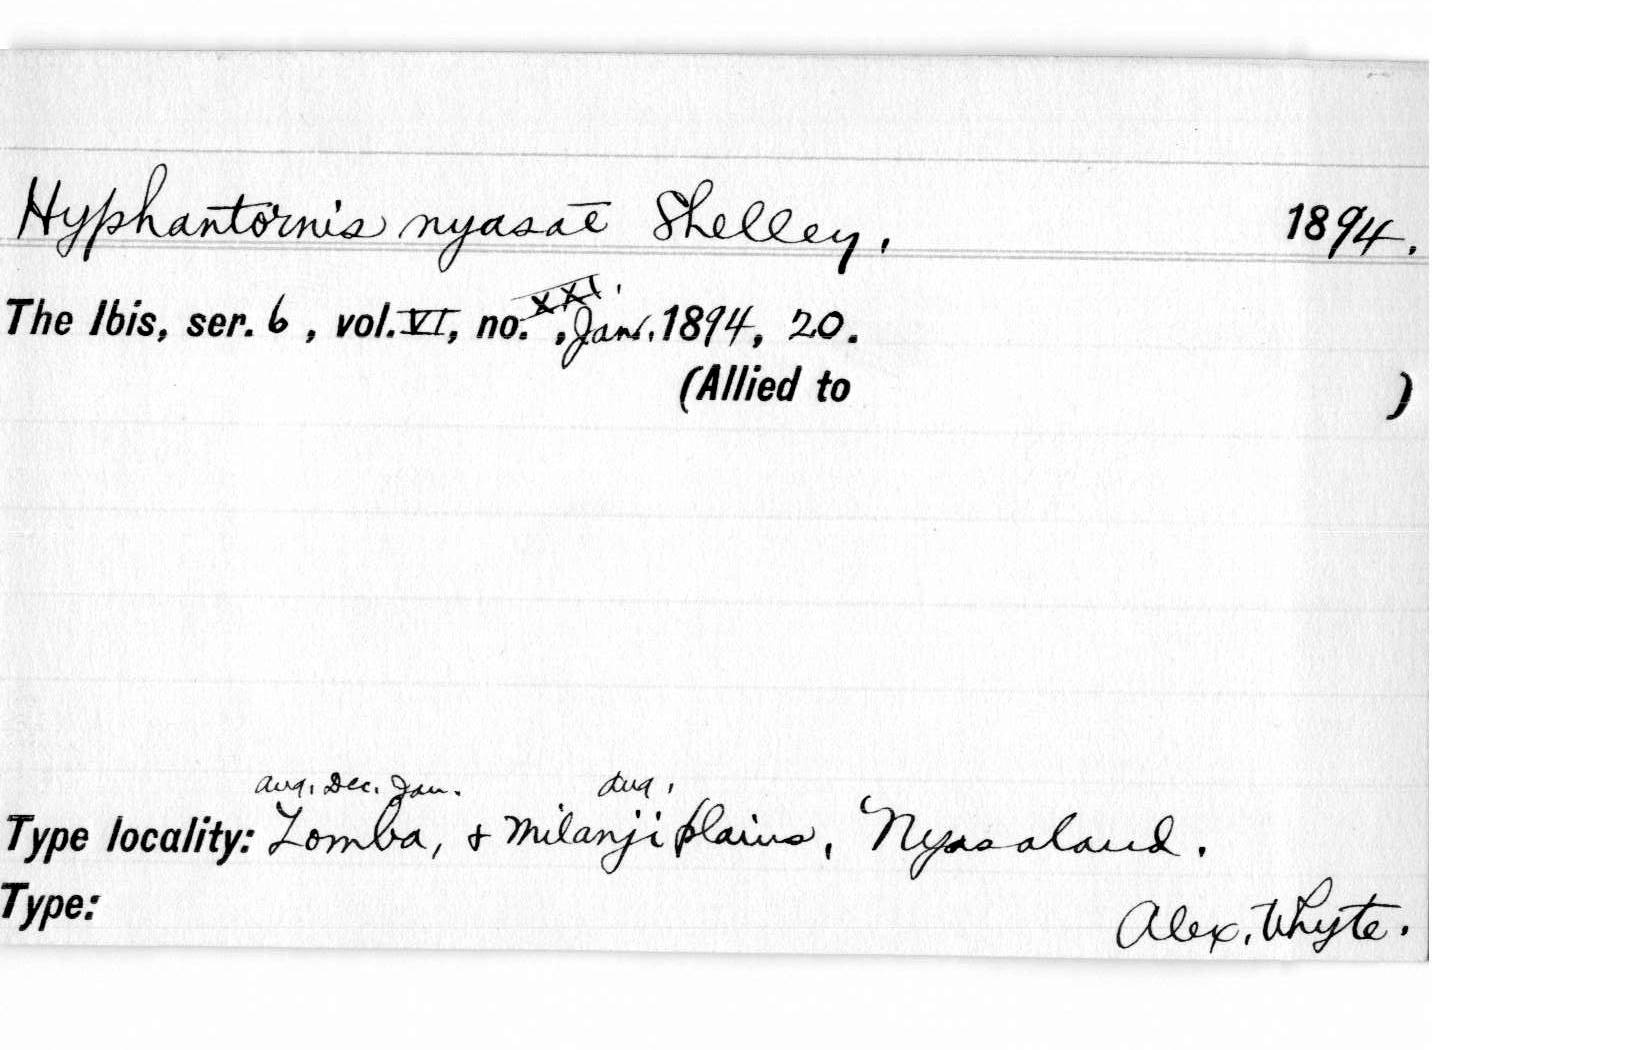 Hyphantornis nyasae Shelley, 1894.
The Ibis, ser. 6, vol. VI, no. XXI, Jan. 1894, 20.
(Allied to )
Aug. Dec. Jan. Aug.
Type locality: Zomba, + Milanji plains, Nyasaland.
Type: Alex. Whyte.